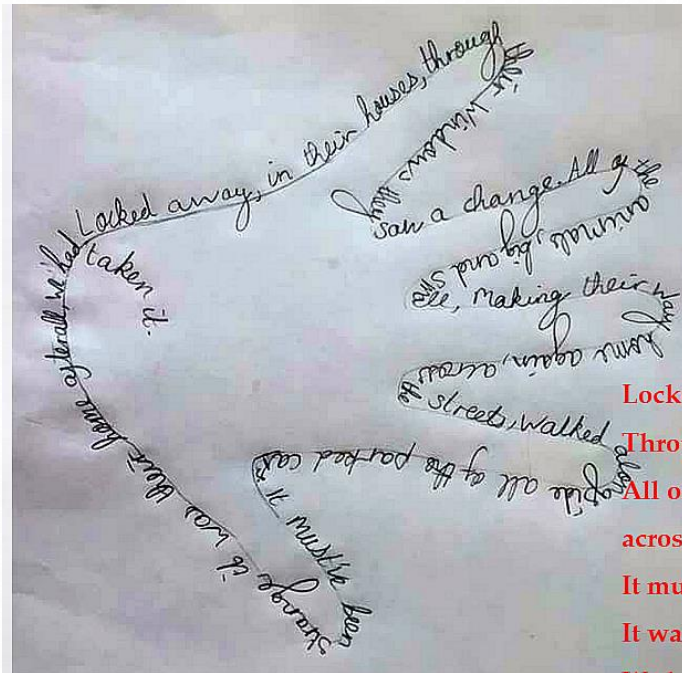 Locked away, in their houses, through
their windows they
saw a change. All of the
animals, big and
small, making their way
home again, across
the streets, walked alongside all of the parked cars
It must've been
strange, it was their home after all, we'had
taken it.
Lock
Throu
All o
acros
It mu
It wa